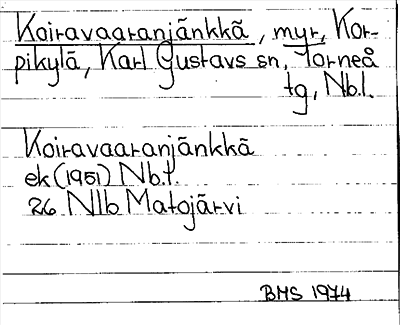 Koiravaaranjänkkä, myr, Kor-
pikylä, Karl Gustavs sn, Torneå
tg, Nb.l.
Koiravaaranjänkkä
ek (1951) Nb.l.
26 Nlb Matojärvi
BMS 1974